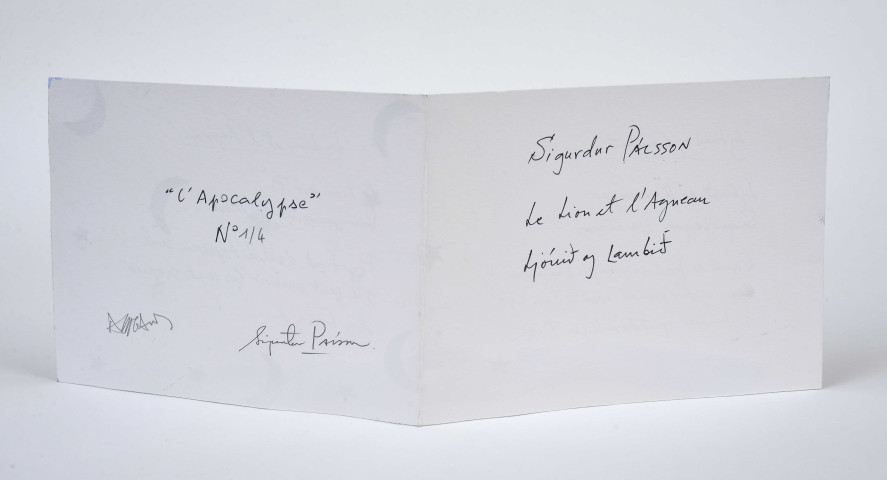 "L'Apocalypse"
N° 1/4
Sigurdur Pálsson
Sigurdur PÁLSSON
Le Lion et l'Agneau
Ljónið og Lambið